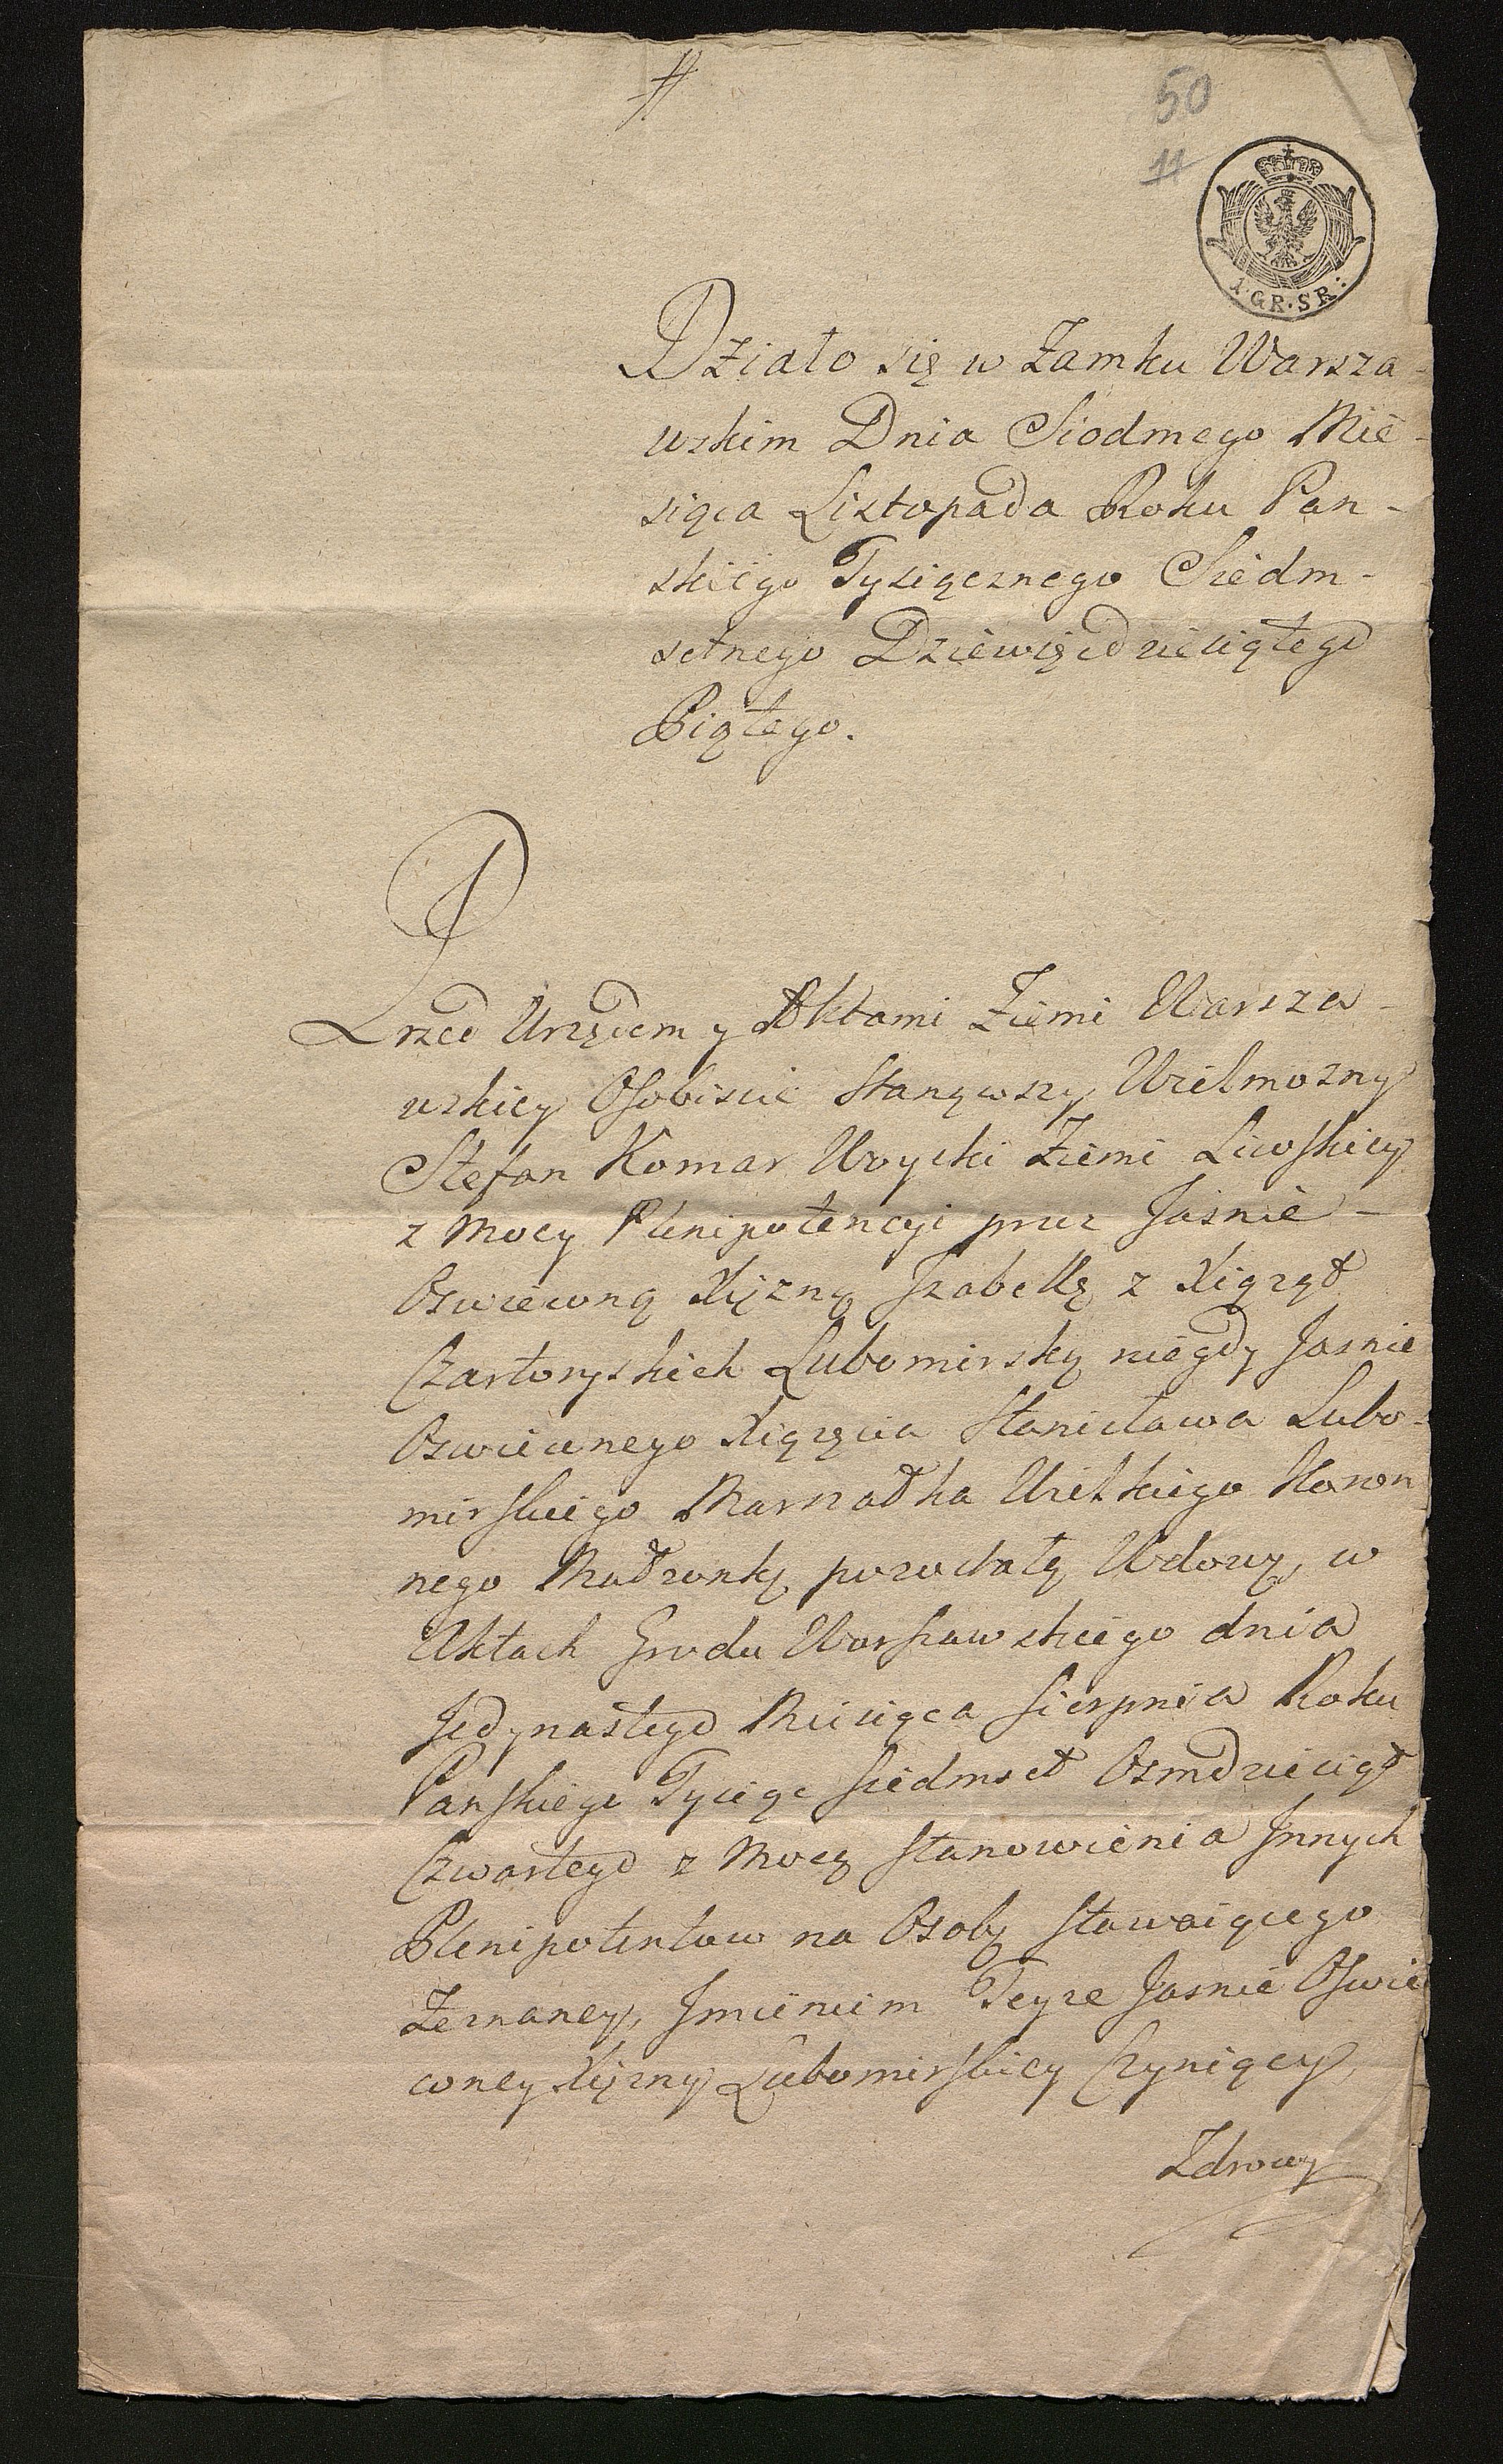 50
11
1·GR·SR:
Działo się w Zamku Warsza-
wskim Dnia Siodmego Mie-
siąca Listopada Roku Pan-
skiego Tysiącznego Siedm-
setnego Dziewięcdziesiątego
Piątego.
Przed Urzędem y Aktami Ziemi Warsza-
wskiey Osobiscie Stanąwszy Wielmozny
Stefan Komar Woyski Ziemi Liwskiey
z Mocy Plenipotencyi przez Jasnie-
Oswieconą Xięznę Izabellę z Xiążąt
Czartoryskich Lubomirską niegdy Jasnie
Oswieconego Xiążęcia Stanisława Lubo-
mirskiego Marszałka Wielkiego Koron
nego Małzonkę pozostałą Wdowę, w
Aktach Grodu Warszawskiego dnia
Jedynastego Miesiąca Sierpnia Roku
Panskiego Tysiąc Siedmset Osmdziesiąt
Czwartego z Mocą Stanowienia Innych
Plenipotentow na Osobę Stawaiącego
Zeznaney, Imieniem Teyze Jasnie Oswie
coney Xięzny Lubomirskiey Czyniący
Zdrowy